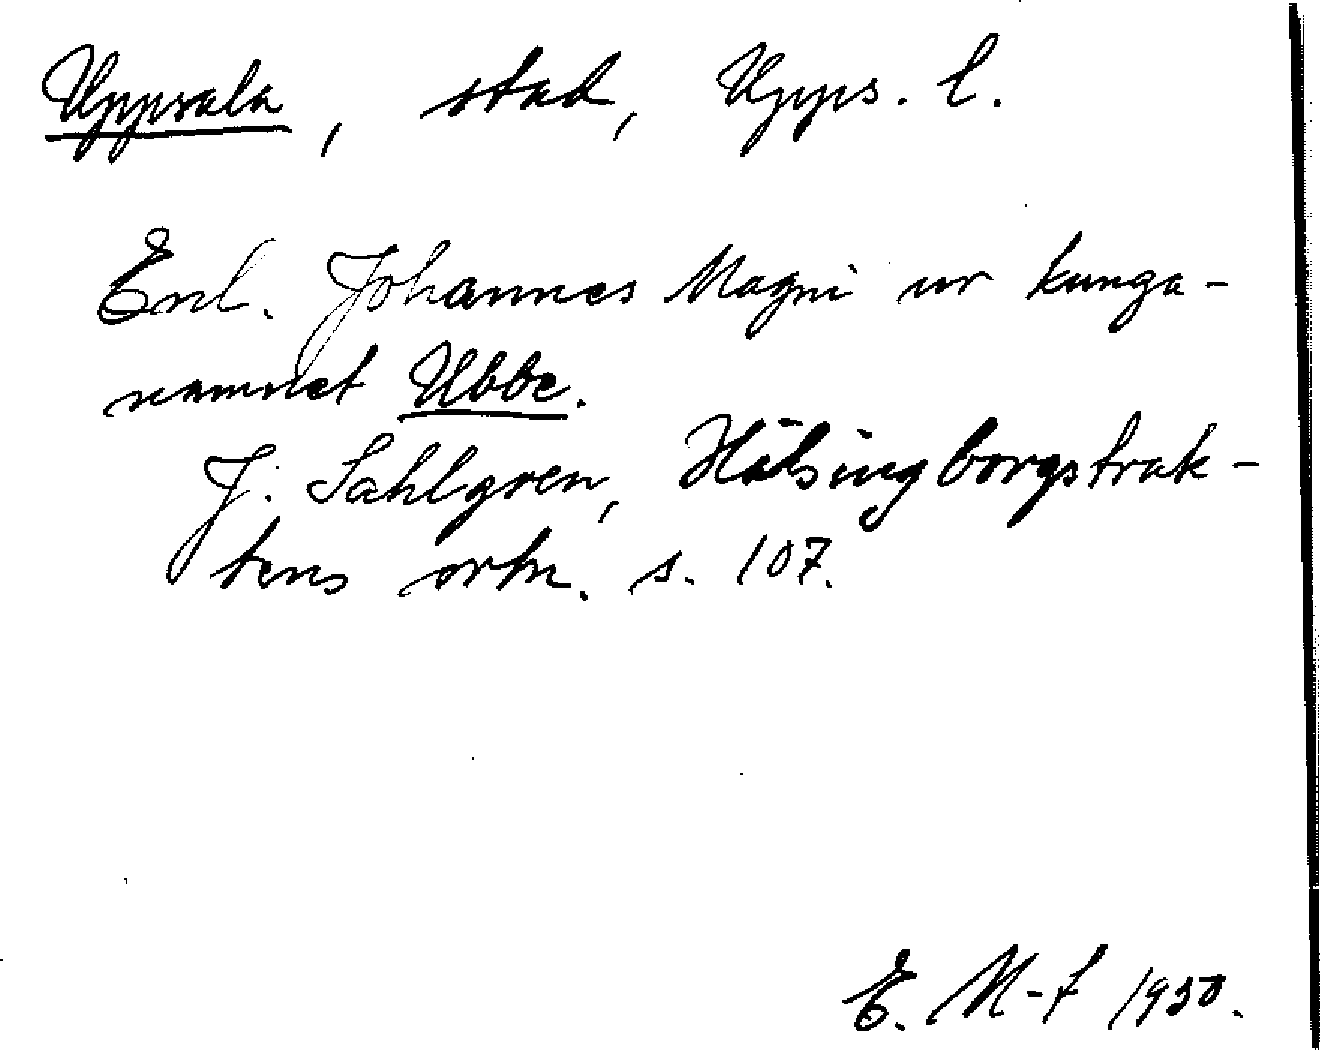 Uppsala, stad, Upps. l.
Enl. Johannes Magni ur kunga-
namnet Ubbe.
J. Sahlgren, Hälsingborgstrak-
tens ortn. s. 107.
E. M-f 1930.